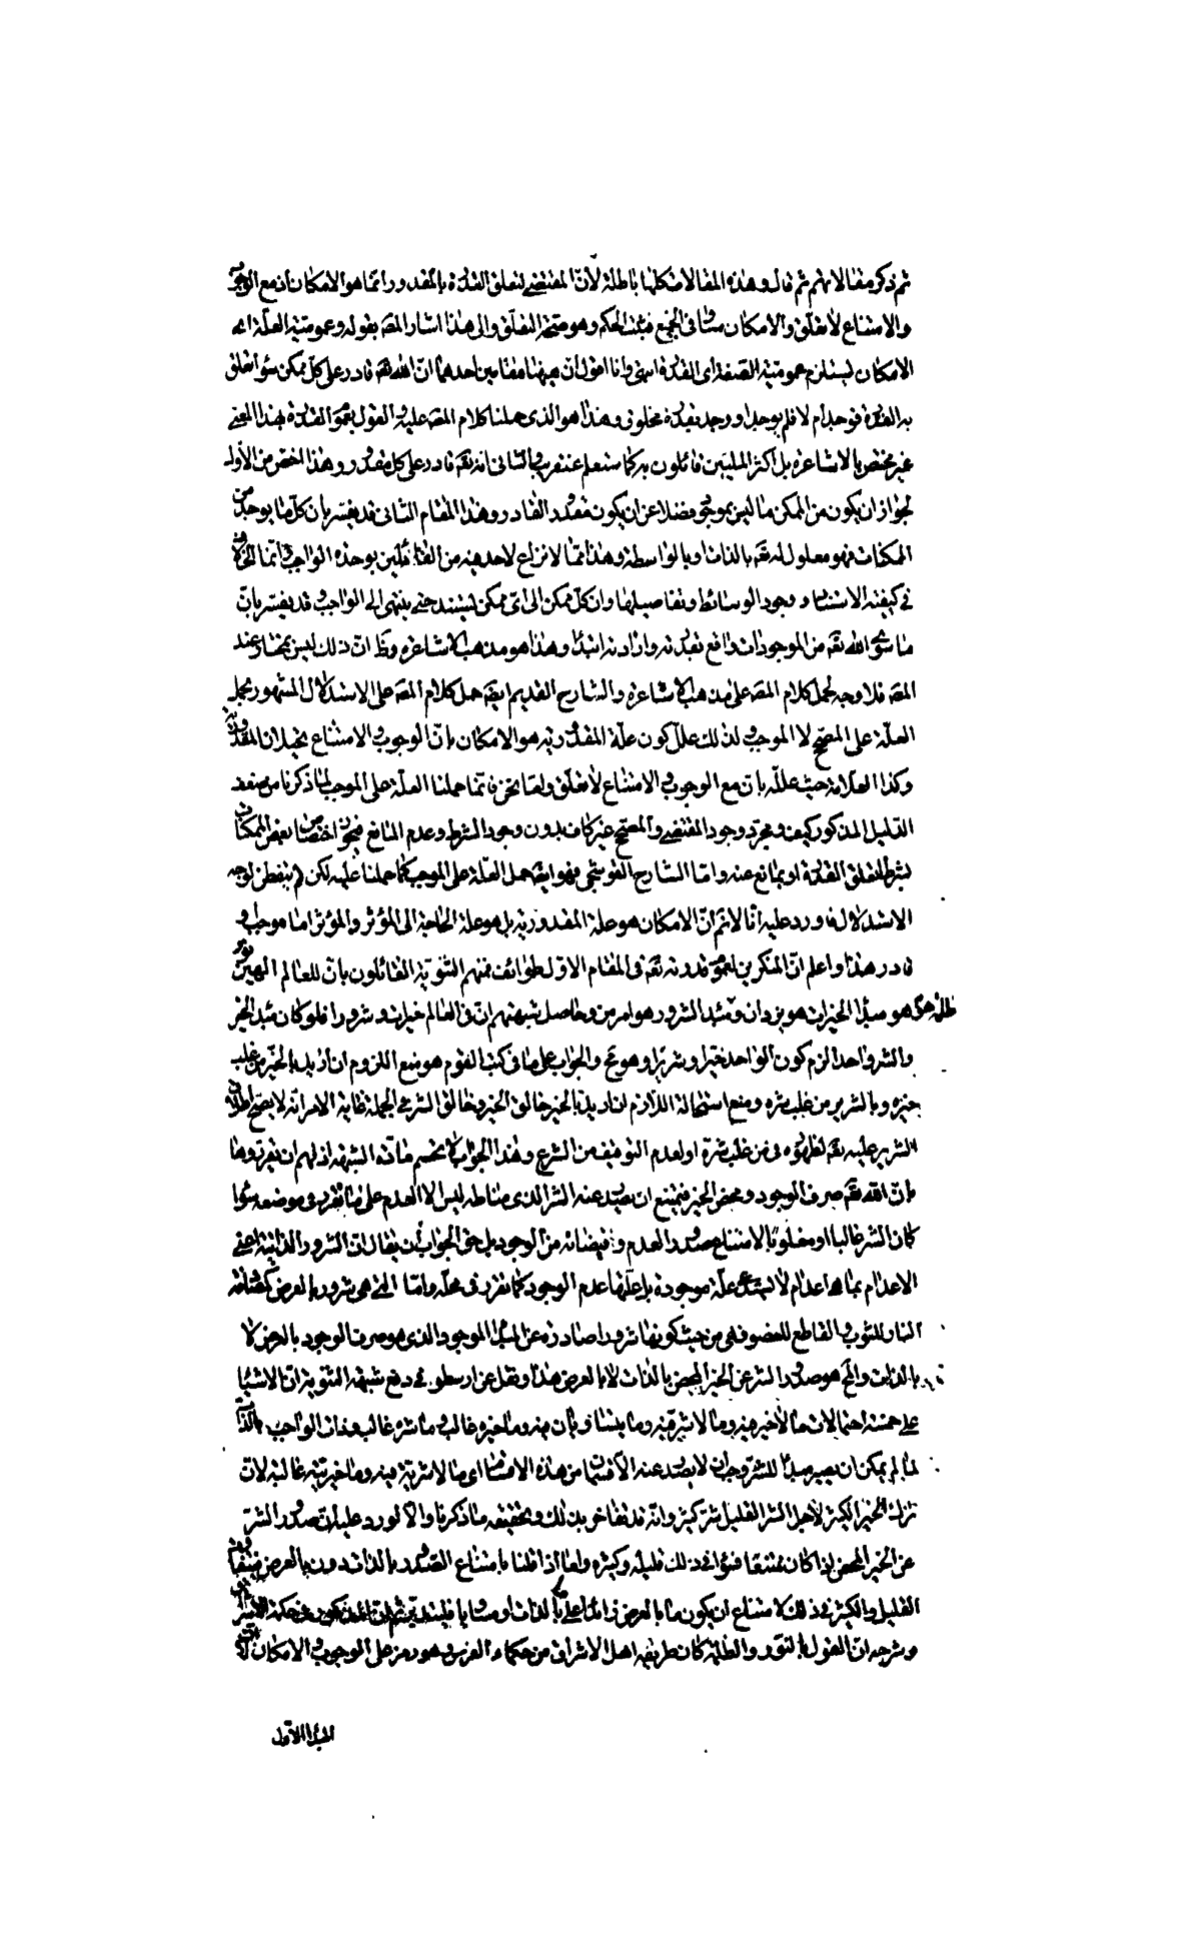 ثم ذكر مقالاتهم ثم قال وهذه المقالات كلها باطلة لأن المقتضى لتعلق القدرة بالمقدور انما هو الامكان اذ مع الوجوب
والامتناع لا تعلق والامكان مساو في الجميع فيثبت الحكم وهو صحة التعلق والى هذا اشار المصه بقوله وعمومية العلة اى
الامكان يستلزم عمومية الصفة اى القدرة انتهى وانا اقول ان ههنا مقامين احدهما ان الله تعه قادر على كل ممكن سواء تعلق
به القدرة فوجد ام لا فلم يوجد او وجد بقدرة مخلوق وهذا هو الذى حملنا كلام المصه عليه والقول بعموم القدرة بهذا المعنى
غير مختص بالاشاعرة بل اكثر المليين قائلون به كما ستعلم عنقريب والثانى انه تعه قادر على كل مقدور وهذا اخص من الأول
لجواز ان يكون من الممكن ما ليس بموجود فضلا عن ان يكون مقدور القادر وهذا المقام الثانى قد يفسر بان كل ما يوجد من
الممكنات فهو معلول له تعه بالذات او بالواسطة وهذا مما لا نزاع لاحد فيه من القائلين بوحدة الواجب وانما الخلاف
في كيفية الاستناد ووجود الوسائط وتفاصيلها وان كل ممكن الى اى ممكن يستند حتى ينتهى الى الواجب وقد يفسر بان
ما سوى الله تعه من الموجودات واقع بقدرته وارادته ابتداء وهذا هو مذهب الاشاعرة وظ ان ذلك ليس بمختار عند
المصه فلا وجه لحمل كلام المصه على مذهب الاشاعرة والشارح القديم ايضه حمل كلام المصه على الاستدلال المشهور بحمل
العلة على المصحح لا الموجب ولذلك علل كون علة المقدورية هو الامكان بان الوجوب والامتناع يحيلان المقدورية
وكذا العلامة حيث علله بان مع الوجوب والامتناع لا تعلق واما نحن فانما حملنا العلة على الموجب لما ذكرنا من ضعف
الدليل المذكور كيف ومجرد وجود المقتضى والمصحح غير كاف بدون وجود الشرط وعدم المانع فيجوز اختصاص بعض الممكنات
بشرط لتعلق القدرة او بمانع عنه واما الشارح القوشجى فهو ايضه حمل العلة على الموجب كما حملنا عليه لكن لم يتفطن لوجه
الاستدلال فاورد عليه انا لا نم ان الامكان هو علة المقدورية بل هو علة الحاجة الى المؤثر والمؤثر اما موجب او
قادر هذا واعلم ان المنكرين لعموم قدرته تعه في المقام الاول طوائف فمنهم الثنوية القائلون بان للعالم الهين نور
ظلمة هو مبدأ الخيرات هو يزدان ومبدأ الشرور هو اهرمن وحاصل شبهتهم ان في العالم خيرات وشرورا فلو كان مبدأ الخير
والشر واحدا لزم كون الواحد خيرا وشريرا وهو مح والجواب على ما في كتب القوم هو منع اللزوم ان اريد بالخير من غلب
خيره وبالشرير من غلب شره ومنع استحالة اللازم ان اريد بالخير خالق الخير وخالق الشر في الجملة غاية الامر انه لا يصح اطلاق
الشرير عليه تعه لظهوره في من غلب شره او لعدم التوقيف من الشرع وهذا الجواب لا يحسم مادة الشبهة اذ لهم ان يقرروها
بان الله تعه صرف الوجود ومحض الخير فيمتنع ان يصدر عنه الشر الذى مناطه ليس الا العدم على ما تقرر في موضعه سواء
كان الشر غالبا او مغلوبا لامتناع صدور العدم وفيضانه من الوجود بل حق الجواب أن يقال ان الشرور الذاتية اعنى
الاعدام بما هى اعدام لا تستدعى علة موجودة بل علتها عدم الوجود كما تقرر في محله واما التى هى شرور بالعرض كاصابة
النار للثوب والقاطع للعضو فهى من حيث كونها شرورا صادرة عن المبدأ الموجود الذى هو صرف الوجود بالعرض لا
بالذات والمح هو صدور الشر عن الخير المحض بالذات لا بالعرض هذا ونقل عن ارسطو في دفع شبهة الثنوية ان الاشياء
على خمسة احتمالات ما لا خير فيه وما لا شر فيه وما يتساويان فيه وما خيره غالب وما شره غالب وذات الواجب بالذات
لما لم يمكن ان يصير مبدأ للشر وجب ان لا يصدر عنه الا قسمان من هذه الاقسام اى ما لا شرية فيه وما خيريته غالبة لان
ترك الخير الكثير لاجل الشر القليل شر كثير وانه قد تفاخر بذلك وتحقيقه ما ذكرنا والا لورد عليه ان صدور الشر
عن الخير المحض اذا كان ممتنعا فسواء في ذلك قليله وكثيره واما اذا قلنا بامتناع الصدور بالذات دون بالعرض فيتفاوت
القليل والكثير في ذلك لامتناع ان يكون ما بالعرض زائدا على ما بالذات او مساويا
وشرحه ان القول بالنور والظلمة كان طريقة اهل الاشراق من حكماء الفرس وهو رمز على الوجوب والامكان
المبدأ الأول